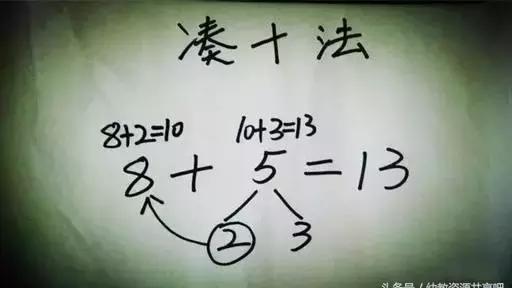 凑十法
8+2=10 10+3=13
8+5=13
2 3
头条号/幼教资源共享吧